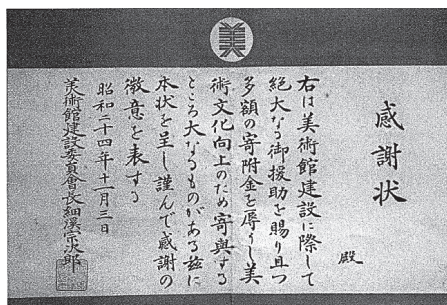 美
感謝状
殿
右は美術館建設に際して
絶大なる御援助を賜り且つ
多額の寄附金を辱うし美
術文化向上のため寄與する
ところ大なるものがある茲に
本状を呈し謹んで感謝の
徴意を表する
昭和二十四年十一月三日
美術館建設委員會長細溪宗次郎